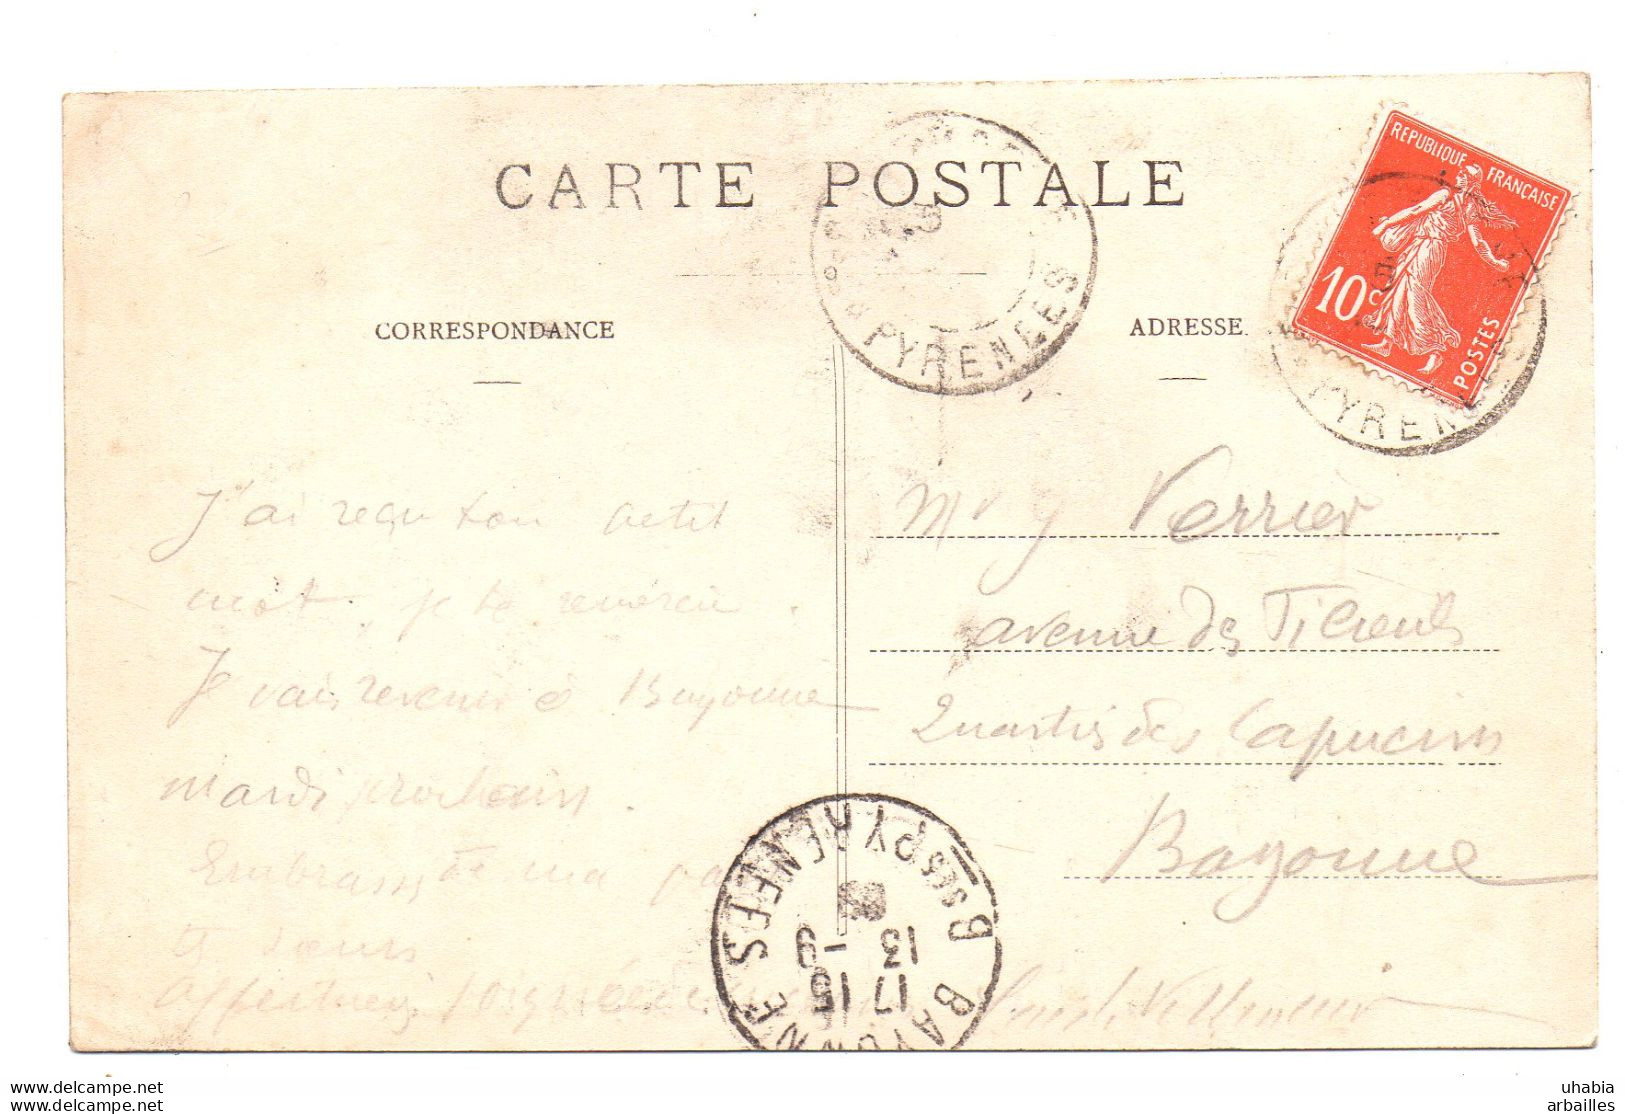 CARTE POSTALE
CORRESPONDANCE
ADRESSE.
REPUBLIQUE FRANÇAISE
10c
POSTES
PYRENEES
PYRENEES
J'ai reçu ton petit
mot, je te remercie.
Je vais revenir à Bayonne
mardi prochain.
Embrasse ma
et sœurs
Mr J Verrier
avenue des Tilleuls
Quartier des Capucins
Bayonne
BAYONNE
17 15
13 -9
BSSES PYRENEES
www.delcampe.net
www.delcampe.net
uhabia
arbailles